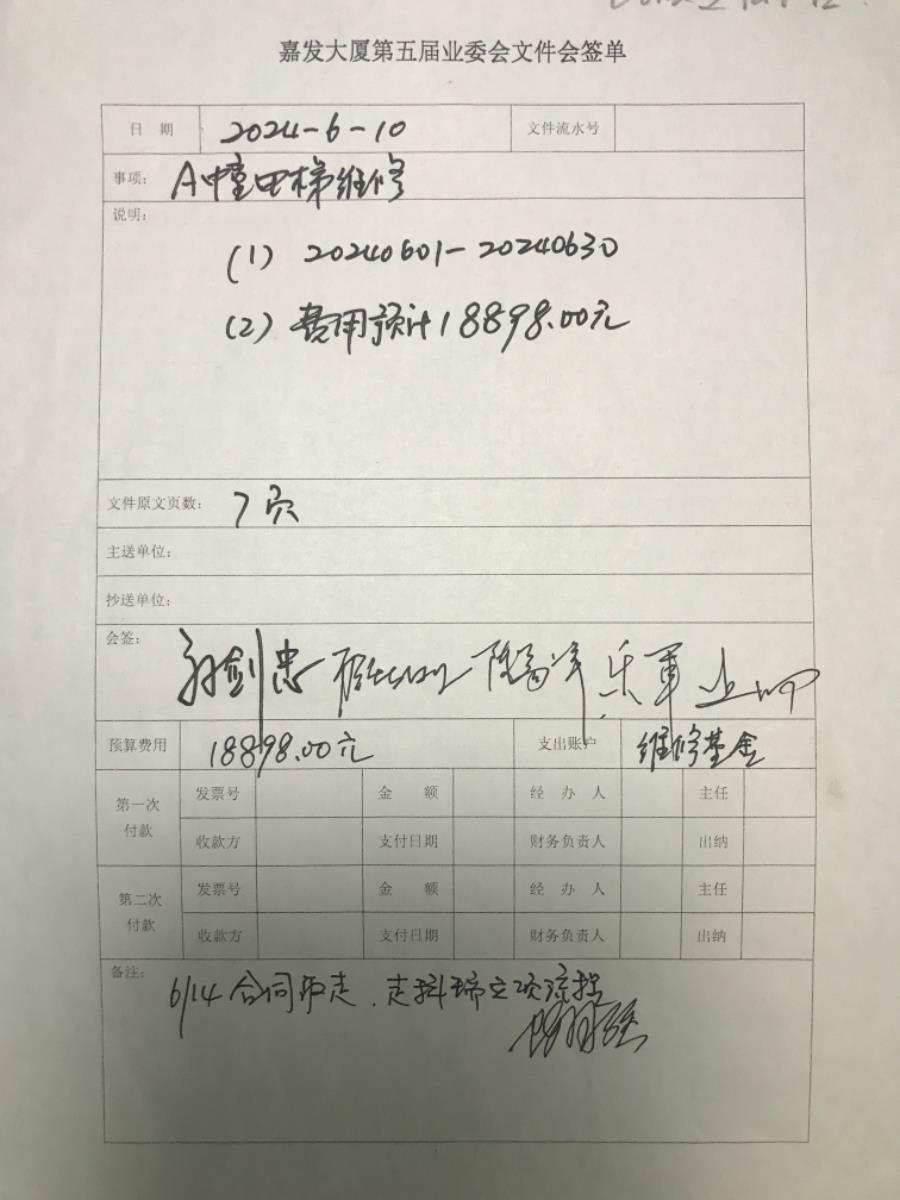 嘉发大厦第五届业委会文件会签单
日 期 2024-6-10 文件流水号
事项: A幢电梯维修
说明:
(1) 20240601-20240630
(2) 费用预计18898.00元
文件原文页数: 7页
主送单位:
抄送单位:
会签: 孙剑忠 乐军
预算费用 18898.00元 支出账户 维修基金
第一次付款 发票号 金 额 经 办 人 主任
收款方 支付日期 财务负责人 出纳
第二次付款 发票号 金 额 经 办 人 主任
收款方 支付日期 财务负责人 出纳
备注:
6/14 合同取走.走科瑞立项流程